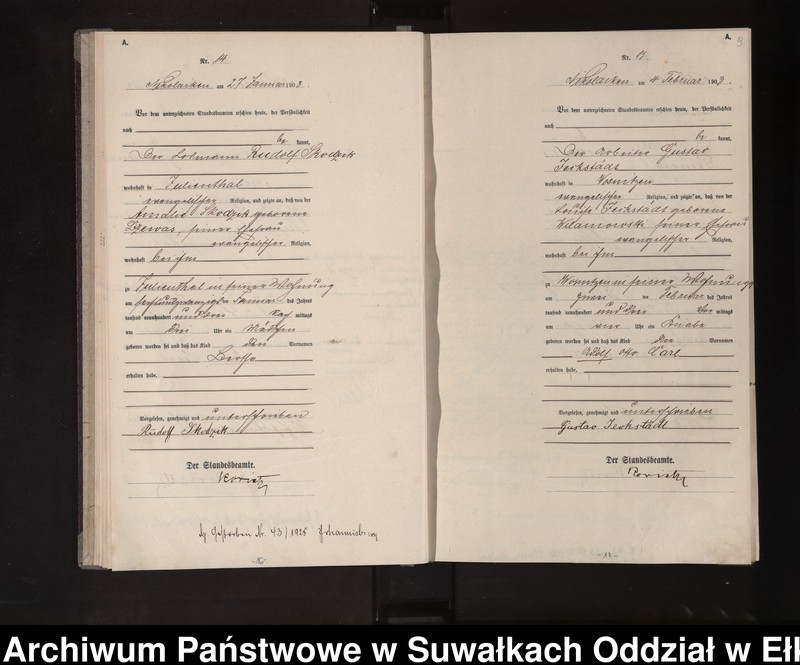 A.
Nr. 14.
Nikolaiken am 27 Januar 1903.
Vor dem unterzeichneten Standesbeamten erschien heute, der Persönlichkeit
nach
be kannt,
Der Losmann Rudolf Skodzik
wohnhaft in Julienthal
evangelischer Religion, und zeigte an, daß von der
Amalie Skodzik geborene
seiner Ehefrau
evangelischer Religion,
wohnhaft bei ihm
zu Julienthal in seiner Wohnung
am sechsundzwanzigsten Januar des Jahres
tausend neunhundert und drei Nach mittags
um drei Uhr ein Mädchen
geboren worden sei und daß das Kind den Vornamen
Bertha
erhalten habe.
Vorgelesen, genehmigt und unterschrieben
Rudolf Skodzik
Der Standesbeamte.
Gestorben Nr. 43/1925 Johannisburg
A.
Nr.
Nikolaiken am 4 Februar 1903.
Vor dem unterzeichneten Standesbeamten erschien heute, der Persönlichkeit
nach
be kannt,
Der Arbeiter Gustav
Jerkstädt
wohnhaft in Wosnitzen
evangelischer Religion, und zeigte an, daß von der
Louise Jerkstädt geborene
Wilamowski seiner Ehefrau
evangelischer Religion,
wohnhaft bei ihm
zu Wosnitzen in seiner Wohnung
am zweiten Februar des Jahres
tausend neunhundert und drei Vor mittags
um Uhr ein Knabe
geboren worden sei und daß das Kind die Vornamen
Adolf Otto Carl
erhalten habe.
Vorgelesen, genehmigt und unterschrieben
Gustav Jerkstädt
Der Standesbeamte.
Archiwum Państwowe w Suwałkach Oddział w Ełk